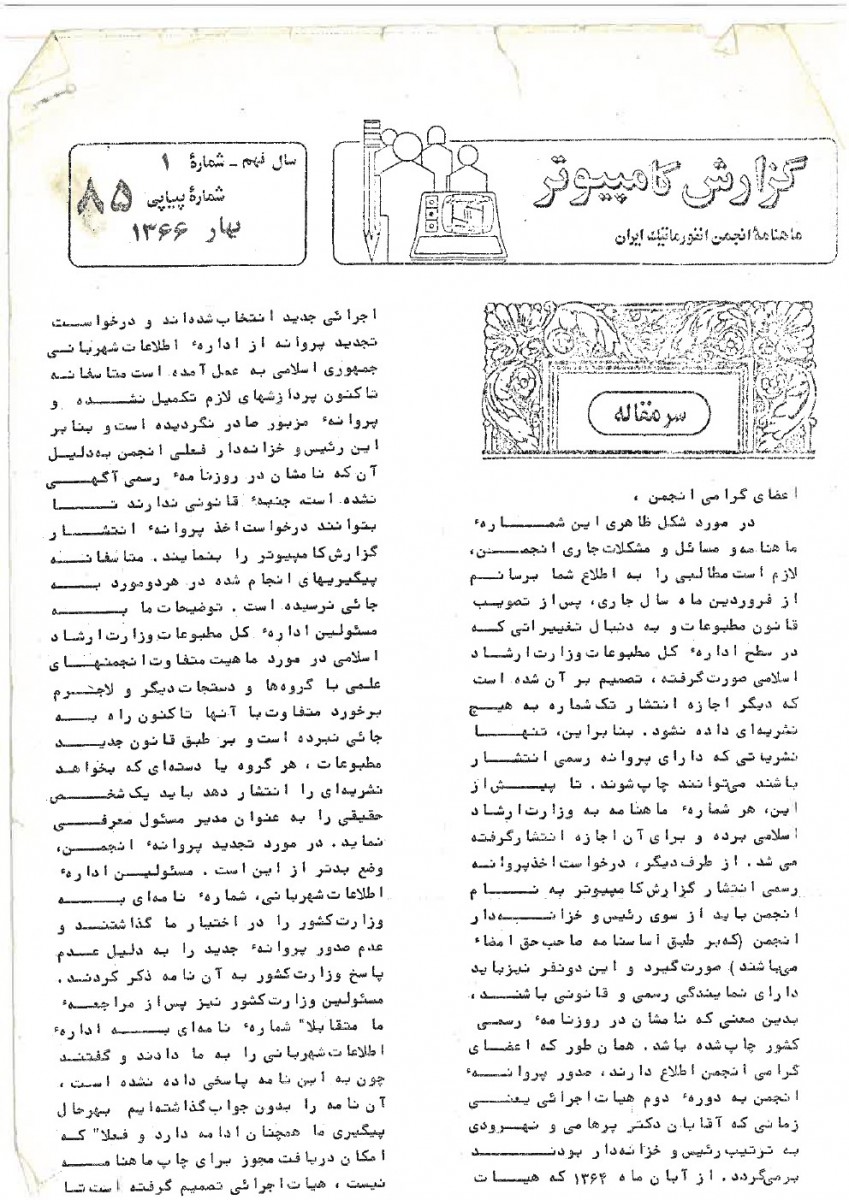 گزارش کامپیوتر
ماهنامهٔ انجمن انفورماتیک ایران
سال نهم - شمارهٔ ۱
شمارهٔ پیاپی ۸۵
بهار ۱۳۶۶
سرمقاله
اعضای گرامی انجمن ،
در مورد شکل ظاهری این شمارهٔ
ماهنامه و مسائل و مشکلات جاری انجمن،
لازم است مطالبی را به اطلاع شما برسانم
از فروردین ماه سال جاری، پس از تصویب
قانون مطبوعات و به دنبال تغییراتی که
در سطح ادارهٔ کل مطبوعات وزارت ارشاد
اسلامی صورت گرفته ، تصمیم بر آن شده است
که دیگر اجازه انتشار تک شماره به هیچ
نشریه‌ای داده نشود. بنابراین، تنها
نشریاتی که دارای پروانه رسمی انتشار
باشند می‌توانند چاپ شوند. تا پیش از
این، هر شمارهٔ ماهنامه به وزارت ارشاد
اسلامی برده و برای آن اجازه انتشار گرفته
می شد. از طرف دیگر، درخواست اخذ پروانه
رسمی انتشار گزارش کامپیوتر به نام
انجمن باید از سوی رئیس و خزانه‌دار
انجمن (که بر طبق اساسنامه صاحب حق امضاء
می‌باشند) صورت گیرد و این دو نفر نیز باید
دارای نمایندگی رسمی و قانونی باشند،
بدین معنی که نامشان در روزنامهٔ رسمی
کشور چاپ شده باشد. همان طور که اعضای
گرامی انجمن اطلاع دارند، صدور پروانهٔ
انجمن به دورهٔ دوم هیات اجرائی یعنی
زمانی که آقایان دکتر پرهامی و نهرودی
به ترتیب رئیس و خزانه‌دار بودند
برمی‌گردد. از آبان ماه ۱۳۶۴ که هیات
اجرائی جدید انتخاب شده‌اند و درخواست
تجدید پروانه از ادارهٔ اطلاعات شهربانی
جمهوری اسلامی به عمل آمده است متاسفانه
تاکنون پردازشهای لازم تکمیل نشده و
پروانهٔ مزبور صادر نگردیده است و بنابر
این رئیس و خزانه‌دار فعلی انجمن به‌دلیل
آن که نامشان در روزنامهٔ رسمی آگهی
نشده است، جنبهٔ قانونی ندارند تا
بتوانند درخواست اخذ پروانهٔ انتشار
گزارش کامپیوتر را بنمایند. متاسفانه
پیگیریهای انجام شده در هر دو مورد به
جائی نرسیده است . توضیحات ما به
مسئولین ادارهٔ کل مطبوعات وزارت ارشاد
اسلامی در مورد ماهیت متفاوت انجمنهای
علمی با گروه‌ها و دستجات دیگر و لاجرم
برخورد متفاوت با آنها تاکنون راه به
جائی نبرده است و بر طبق قانون جدید
مطبوعات ، هر گروه یا دسته‌ای که بخواهد
نشریه‌ای را انتشار دهد باید یک شخص
حقیقی را به عنوان مدیر مسئول معرفی
نماید. در مورد تجدید پروانهٔ انجمن،
وضع بدتر از این است . مسئولین ادارهٔ
اطلاعات شهربانی، شمارهٔ نامه‌ای به
وزارت کشور را در اختیار ما گذاشتند و
عدم صدور پروانهٔ جدید را به دلیل عدم
پاسخ وزارت کشور به آن نامه ذکر کردند.
مسئولین وزارت کشور نیز پس از مراجعهٔ
ما متقابلا" شمارهٔ نامه‌ای به ادارهٔ
اطلاعات شهربانی را به ما دادند و گفتند
چون به این نامه پاسخی داده نشده است ،
آن نامه را بدون جواب گذاشته‌ایم بهرحال
پیگیری ما همچنان ادامه دارد و فعلا" که
امکان دریافت مجوز برای چاپ ماهنامه
نیست ، هیات اجرائی تصمیم گرفته است تا